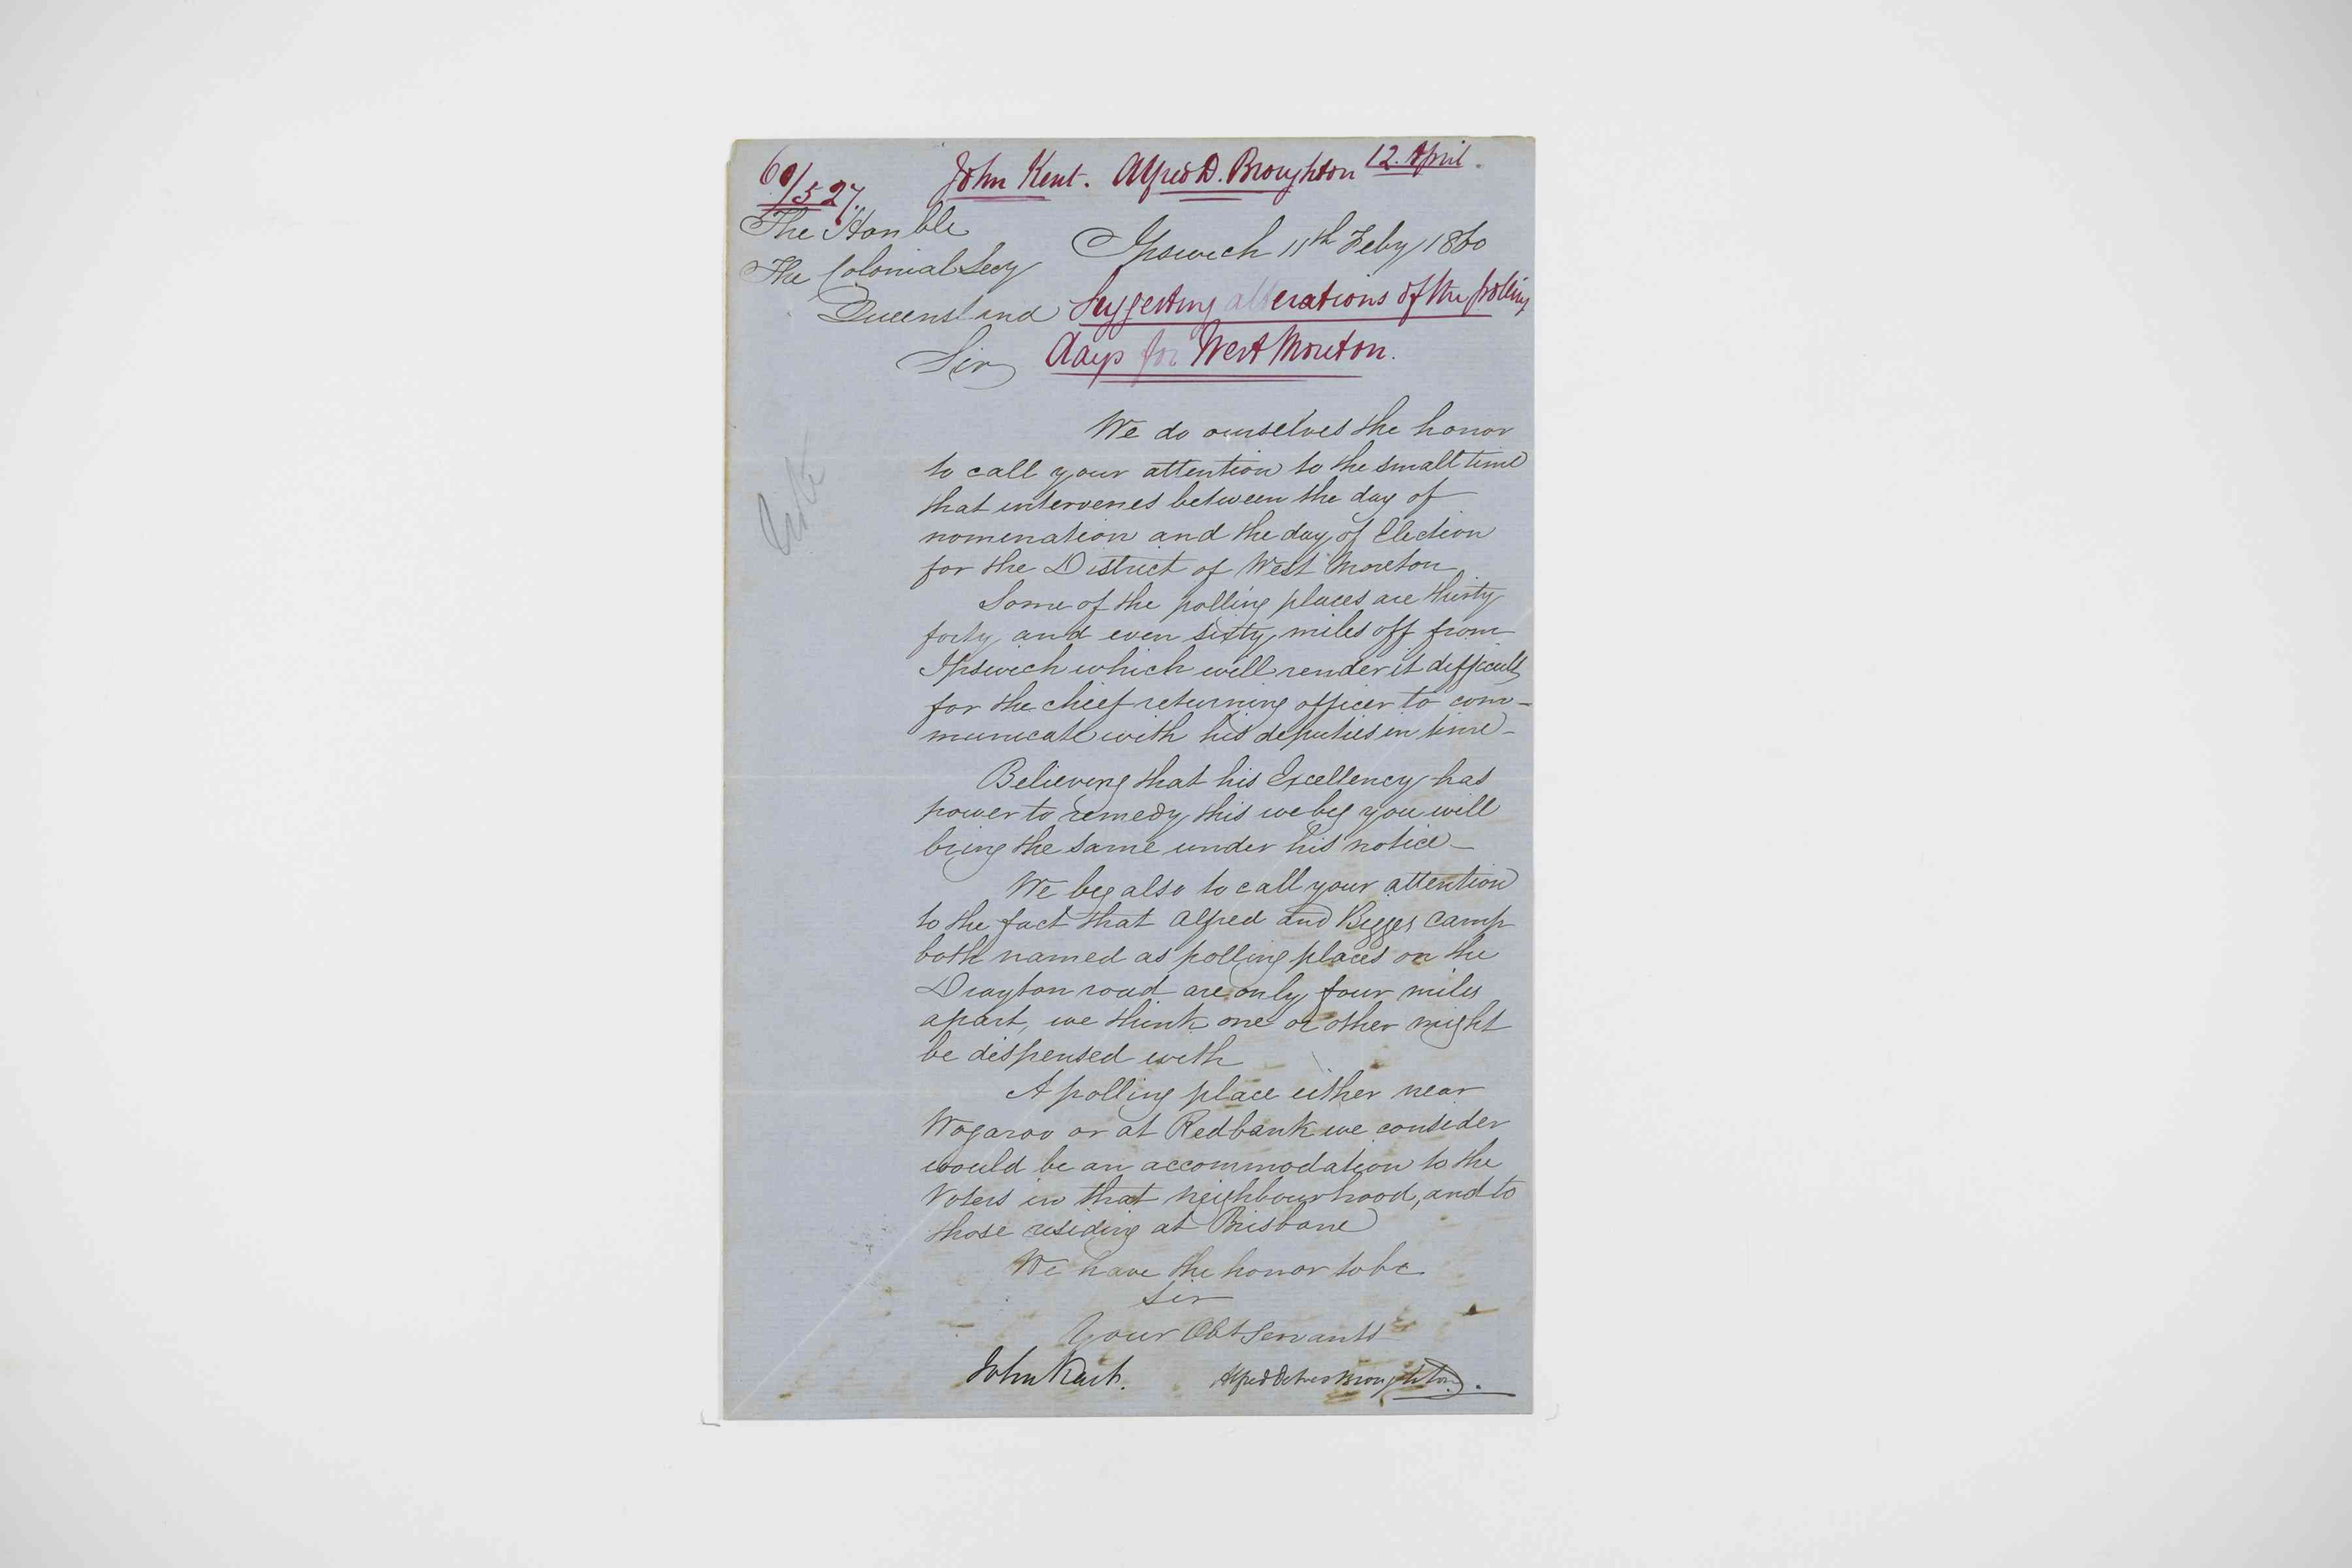 60/527.
John Kent. Alfred D. Broughton 12. April.
The Honble
Ipswich 11th Feby 1860
The Colonial Secy
Queensland
Suggesting alterations of the polling
days for West Moreton.
Sir
We do ourselves the honor
to call your attention to the small time
that intervenes between the day of
nomination and the day of Election
for the District of West Moreton
Some of the polling places are thirty
forty and even sixty miles off from
Ipswich which will render it difficult
for the chief returning officer to com-
municate with his deputies in time -
Believing that his Excellency has
power to remedy this we beg you will
bring the same under his notice -
We beg also to call your attention
to the fact that Alfred and Bigges Camp
both named as polling places on the
Drayton road are only four miles
apart, we think one or other might
be dispensed with
A polling place either near
Wogaroo or at Redbank we consider
would be an accommodation to the
Voters in that neighbourhood, and to
those residing at Brisbane
We have the honor to be
Sir
Your Obt Servants
John Kent. Alfred Delves Broughton.